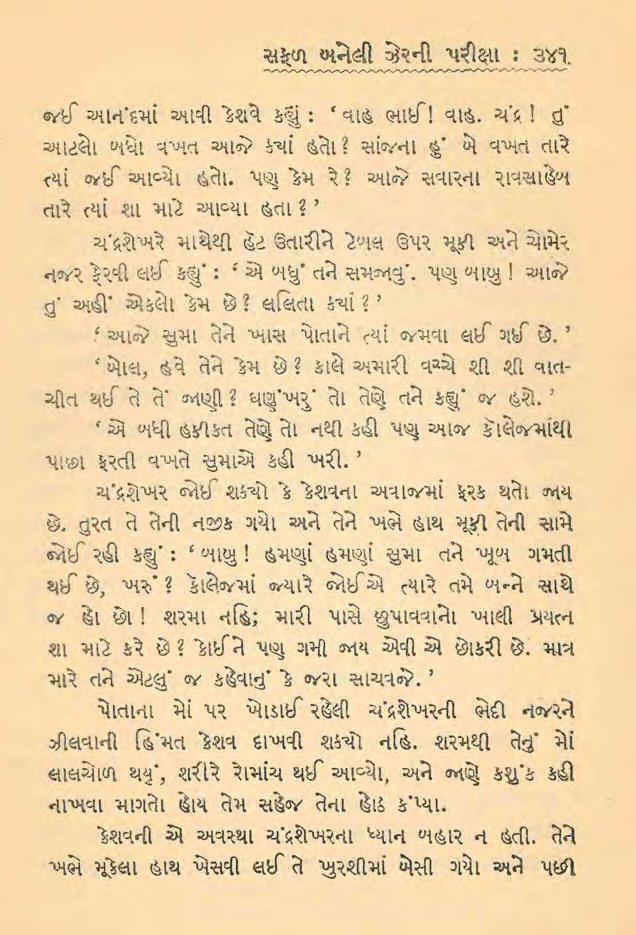 સફળ બનેલી ઝેરની પરીક્ષા : ૩૪૧
જઈ આનંદમાં આવી કેશવે કહ્યું : ‘ વાહ ભાઈ! વાહ. ચંદ્ર ! તું
આટલો બધો વખત આજે કયાં હતો? સાંજના હું બે વખત તારે
ત્યાં જઈ આવ્યો હતો. પણ કેમ રે? આજે સવારના રાવસાહેબ
તારે ત્યાં શા માટે આવ્યા હતા ? ’
ચંદ્રશેખરે માથેથી હૅટ ઉતારીને ટેબલ ઉપર મૂકી અને ચોમેર
નજર ફેરવી લઈ કહ્યું : ‘ એ બધું તને સમજાવું. પણ બાબુ ! આજે
તું અહીં એકલો કેમ છે? લલિતા કયાં ? ’
‘ આજે સુમા તેને ખાસ પોતાને ત્યાં જમવા લઈ ગઈ છે. ’
‘ બોલ, હવે તેને કેમ છે ? કાલે અમારી વચ્ચે શી શી વાત-
ચીત થઈ તે તેં જાણી ? ઘણુંખરું તો તેણે તને કહ્યું જ હશે. ’
‘ એ બધી હકીકત તેણે તો નથી કહી પણ આજ કૉલેજમાંથી
પાછા ફરતી વખતે સુમાએ કહી ખરી. ’
ચંદ્રશેખર જોઈ શકયો કે કેશવના અવાજમાં ફરક થતો જાય
છે. તુરત તે તેની નજીક ગયો અને તેને ખભે હાથ મૂકી તેની સામે
જોઈ રહી કહ્યું : ‘ બાબુ ! હમણાં હમણાં સુમા તને ખૂબ ગમતી
થઈ છે, ખરું ? કૉલેજમાં જ્યારે જોઈએ ત્યારે તમે બન્ને સાથે
જ હો છો ! શરમા નહિ; મારી પાસે છુપાવવાનો ખાલી પ્રયત્ન
શા માટે કરે છે ? કોઈને પણ ગમી જાય એવી એ છોકરી છે. માત્ર
મારે તને એટલું જ કહેવાનું કે જરા સાચવજે. ’
પોતાના મોં પર ખોડાઈ રહેલી ચંદ્રશેખરની ભેદી નજરને
ઝીલવાની હિંમત કેશવ દાખવી શકયો નહિ. શરમથી તેનું મોં
લાલચોળ થયું, શરીરે રોમાંચ થઈ આવ્યો, અને જાણે કશુંક કહી
નાખવા માગતો હોય તેમ સહેજ તેના હોઠ કંપ્યા.
કેશવની એ અવસ્થા ચંદ્રશેખરના ધ્યાન બહાર ન હતી. તેને
ખભે મૂકેલા હાથ ખેસવી લઈ તે ખુરશીમાં બેસી ગયો અને પછી